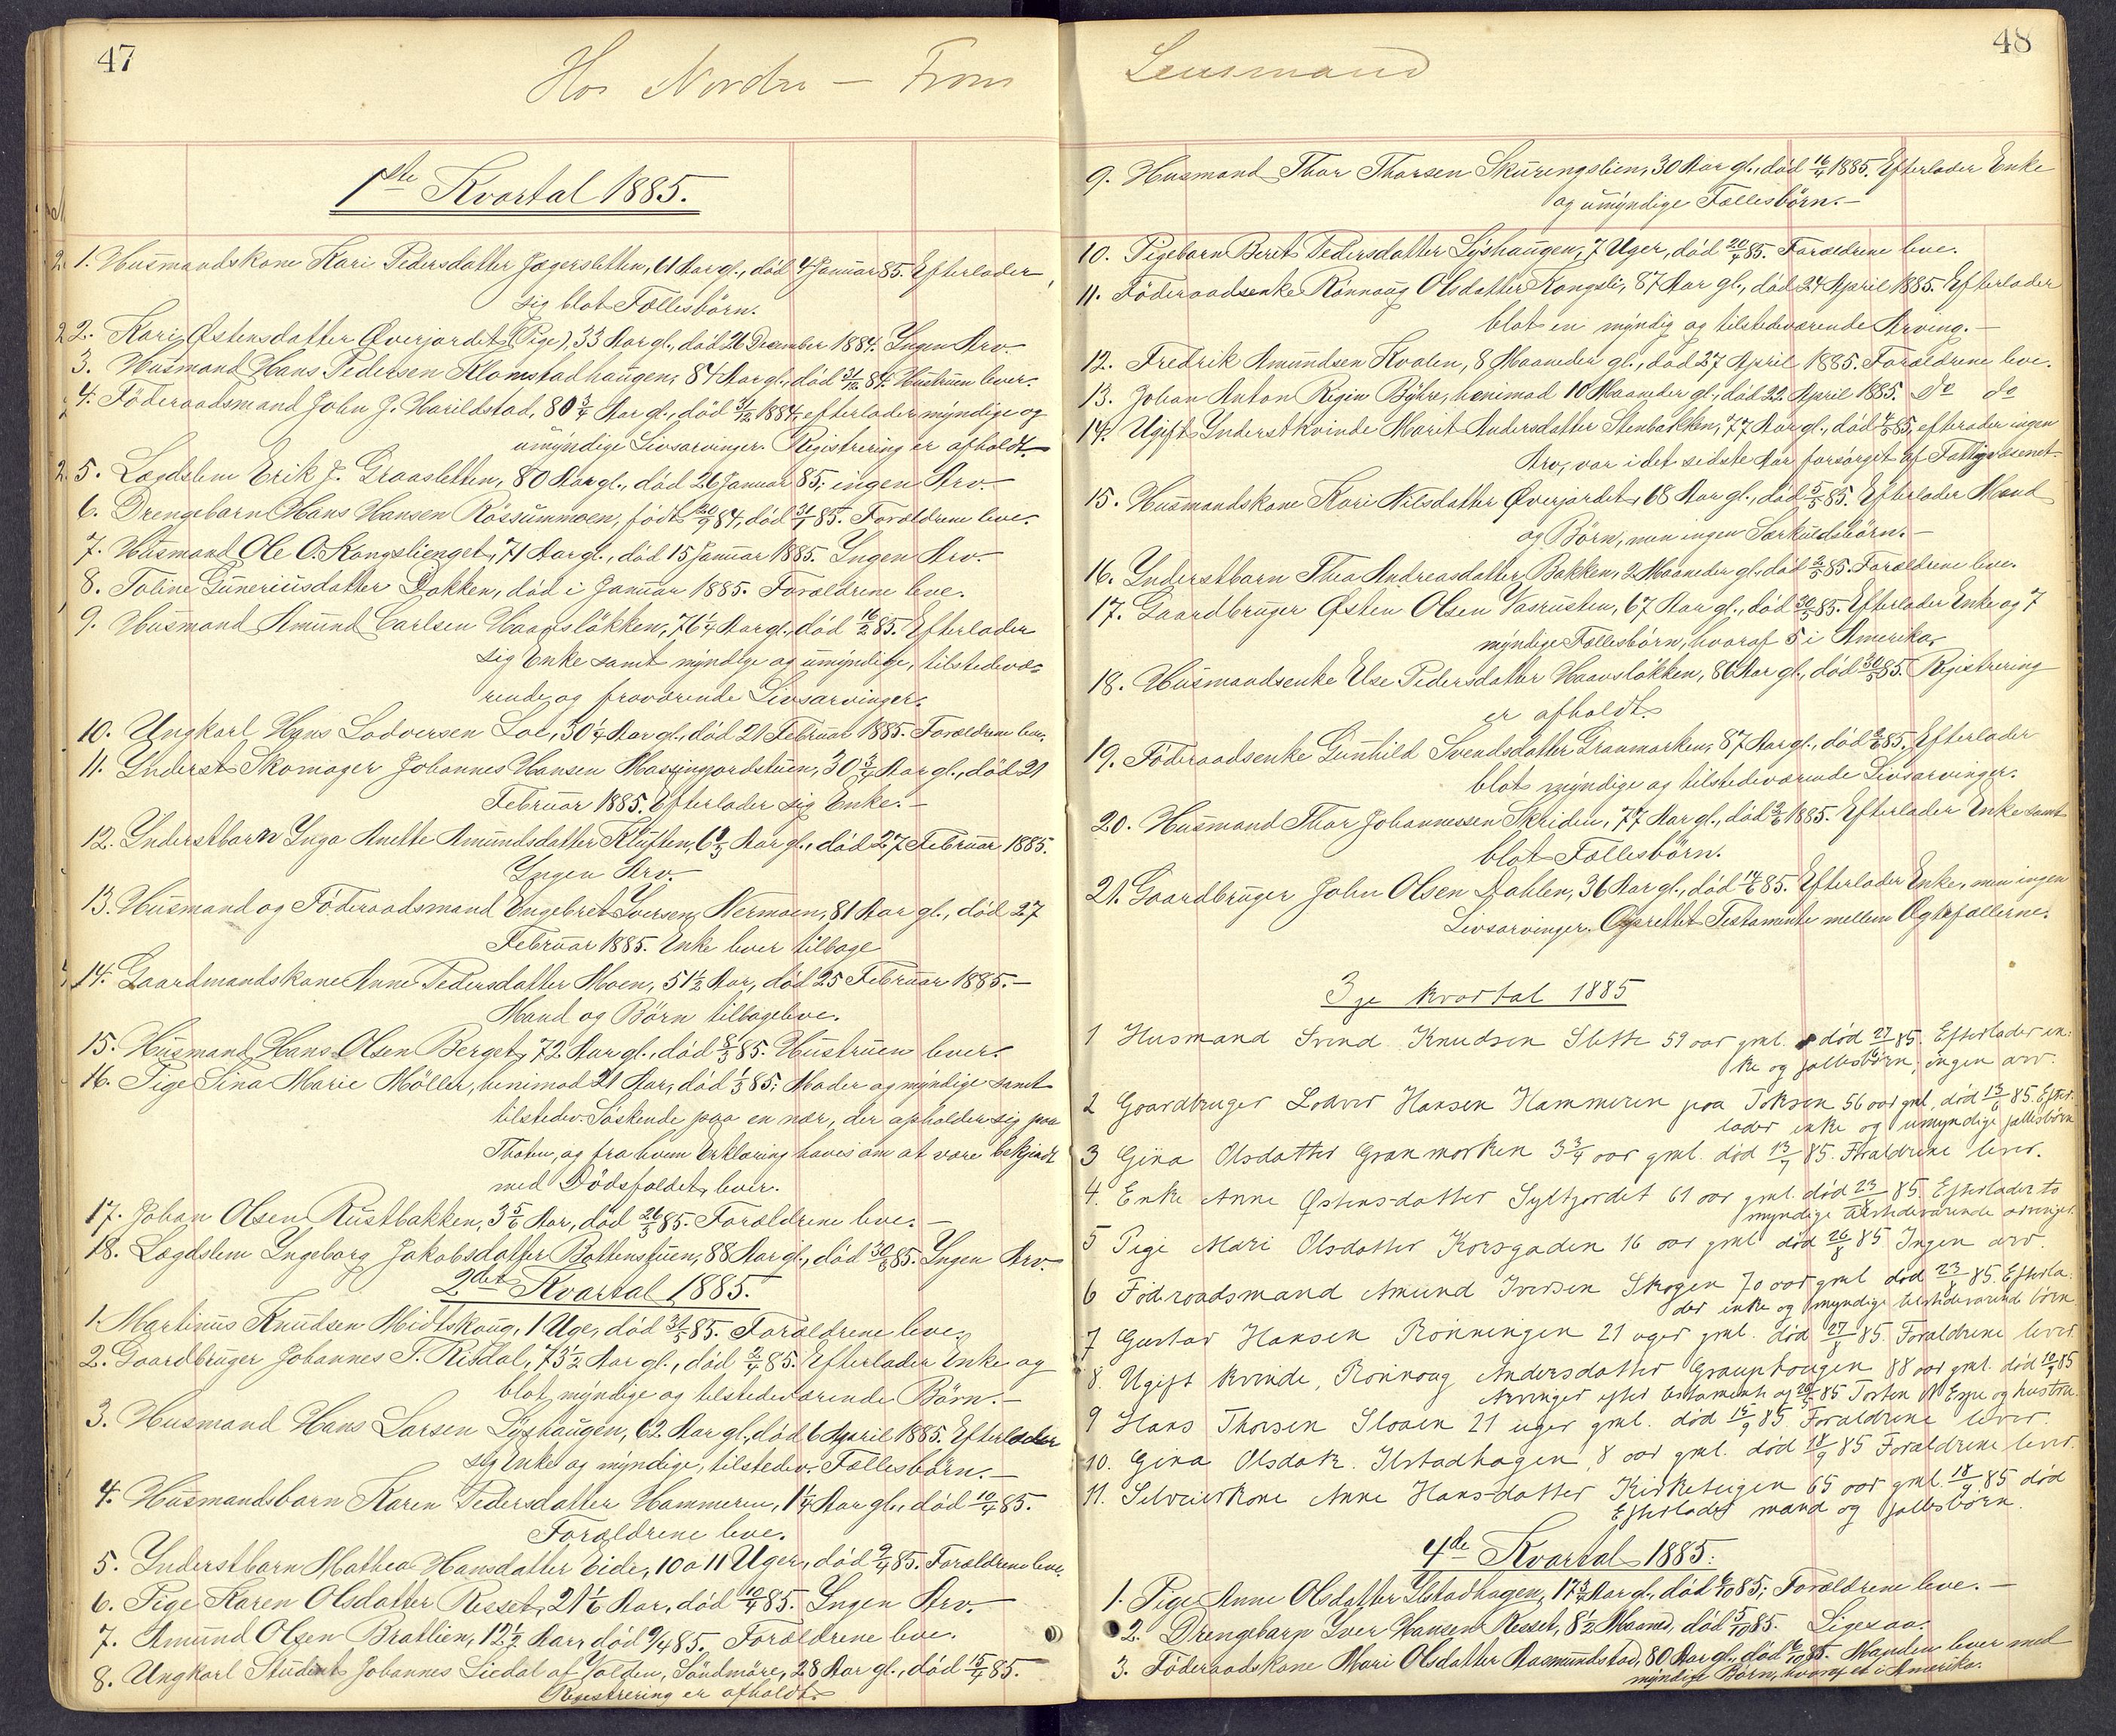 47
Hos Nordre - Frons
1ste Kvartal 1885.
1. Husmandskone Kari Pedersdatter Jægersletten, 61 Aar gl., död 4 Januar 85. Efterlader
sig blot Fællesbörn.
2. Kari Østensdatter Øverjordet (Pige), 33 Aar gl., död 26 December 1884. Ingen Arv.
3. Husmand Hans Pedersen Klomstadhaugen, 84 Aar gl., död 31/12 84. Hustruen lever.
4. Föderaadsmand John J. Harildstad, 80 3/4 Aar gl., död 31/12 1884, efterlader myndige og
umyndige Livsarvinger. Registrering er afholdt.
5. Lægdslem Erik J. Graasletten, 80 Aar gl., död 26 Januar 85, ingen Arv.
6. Drengebarn Hans Hansen Rössummoen, födt 20/9 84, död 31/1 85. Forældrene leve.
7. Husmand Ole O. Kongslienget, 71 Aar gl., död 15 Januar 1885. Ingen Arv.
8. Toline Gunereusdatter Dokken, död i Januar 1885. Forældrene leve.
9. Husmand Amund Carlsen Haavslökken, 76 1/4 Aar gl., död 16/2 85. Efterlader
sig Enke samt myndige og umyndige, tilstedevæ-
rende og fraværende Livsarvinger.
10. Ungkarl Hans Lodversen Loe, 30 1/4 Aar gl., död 21 Februar 1885. Forældrene leve.
11. Inderst Skomager Johannes Hansen Massingjordstuen, 30 3/4 Aar gl., död 21
Februar 1885. Efterlader sig Enke. -
12. Inderstbarn Inga Anette Amundsdatter Kluften, 6 2/3 Aar gl., död 27 Februar 1885.
Ingen Arv. -
13. Husmand og Föderaadsmand Engebret Iversen Nermoen, 81 Aar gl., död 27
Februar 1885. Enke lever tilbage
14. Gaardmandskone Anne Pedersdatter Moen, 51 1/2 Aar, död 25 Februar 1885. -
Mand og Börn tilbageleve.
15. Husmand Hans Olsen Berget, 72 Aar gl., död 8/3 85. Hustruen lever.
16. Pige Sina Marie Möller, henimod 21 Aar, död 1/3 85; Moder og myndige samt
tilstedev. Söskende paa en nær, der opholder sig paa
Thoten, og fra hvem Erklæring haves om at være bekjendt
med Dödsfaldet, lever.
17. Johan Olsen Rustbakken, 3 5/6 Aar, död 26/3 85. Forældrene leve. -
18. Lægdslem Ingeborg Jakobsdatter Bottenstuen, 88 Aar gl., död 30/3 85. Ingen Arv.
2det Kvartal 1885.
1. Martinus Knudsen Midtskoug, 1 Uge, död 31/3 85. Forældrene leve.
2. Gaardbruger Johannes T. Risdal, 73 1/2 Aar gl., död 2/4 85. Efterlader Enke og
blot myndige og tilstedeværende Börn. -
3. Husmand Hans Larsen Lyshaugen, 62 Aar gl., död 6 April 1885. Efterlader
sig Enke og myndige, tilstedev. Fællesbörn. -
4. Husmandsbarn Karen Pedersdatter Hammeren, 1 1/4 Aar gl., död 10/4 85.
Forældrene leve.
5. Inderstbarn Mathea Hansdatter Eide, 10 a 11 Uger, död 9/4 85. Forældrene leve.
6. Pige Karen Olsdatter Resset, 21 1/6 Aar, död 10/4 85. Ingen Arv. -
7. Amund Olsen Bratlien, 12 1/2 Aar, död 9/4 85. Forældrene leve.
8. Ungkarl Student Johannes Liedal af Volden, Söndmöre, 28 Aar gl., död 15/4 85.
Registrering er afholdt.
48
Lensmand
9. Husmand Thor Thorsen Skuringslien, 30 Aar gl., död 16/4 1885. Efterlader Enke
og umyndige Fællesbörn. -
10. Pigebarn Berit Pedersdatter Lyshaugen, 7 Uger, död 20/4 85. Forældrene leve.
11. Föderaadsenke Rönnaug Olsdatter Kongsli, 87 Aar gl., död 24 April 1885. Efterlader
blot en myndig og tilstedeværende Arving. -
12. Fredrik Amundsen Kvalen, 8 Maaneder gl., död 27 April 1885. Forældrene leve.
13. Johan Anton Regin Byhre, henimod 10 Maaneder gl., död 22 April 1885. do do
14. Ugift Inderstkvinde Marit Andersdatter Stenbakken, 77 Aar gl., död 4/5 85, efterlader ingen
Arv, var i det sidste Aar forsörget af Fattigvæsenet.
15. Husmandskone Kari Nilsdatter Øverjordet, 68 Aar gl., död 5/5 85. Efterlader Mand
og Börn, men ingen Særkuldsbörn. -
16. Inderstbarn Thea Andreasdatter Bakken, 2 Maaneder gl., död 2/5 85. Forældrene leve.
17. Gaardbruger Østen Olsen Vasrusten, 67 Aar gl., död 30/5 85. Efterlader Enke og 7
myndige Fællesbörn, hvoraf 5 i Amerika.
18. Husmandsenke Else Pedersdatter Haavslökken, 86 Aar gl., död 30/5 85. Registrering
er afholdt.
19. Föderaadsenke Gunhild Svendsdatter Granmorken, 87 Aar gl., död 2/6 85. Efterlader
blot myndige og tilstedeværende Livsarvinger.
20. Husmand Thor Johannessen Skriden, 77 Aar gl., död 2/6 1885. Efterlader Enke samt
blot Fællesbörn.
21. Gaardbruger John Olsen Dahlen, 36 Aar gl., död 14/6 85. Efterlader Enke, men ingen
Livsarvinger. Oprettet Testamente mellem Ægtefællerne.
3je kvartal 1885
1 Husmand Svend Knudsen Slette 59 aar gml. död 27/6 85. Efterlader en-
ke og fællesbörn, ingen arv.
2 Gaardbruger Lodver Hansen Hammeren paa Toksen 56 aar gml, död 13/6 85. Efter-
lader enke og umyndige fællesbörn
3 Gina Olsdatter Granmorken 3 3/4 aar gml. död 13/7 85. Forældrene lever.
4. Enke Anne Østensdatter Syltjordet 61 aar gml. död 23/8 85. Efterlader to
myndige tilstedeværende arvinger.
5 Pige Mari Olsdatter Korsgaden 16 aar gml död 26/8 85 Ingen arv.
6 Föderaadsmand Amund Iversen Skogen 70 aar gml död 23/8 85. Efterla-
der enke og myndige tilstedeværende börn
7 Gustav Hansen Rönningen 21 uger gml. död 27/8 85. Forældrene lever.
8. Ugift kvinde, Rönnoug Andersdatter Grauphougen 88 aar gml. död 10/9 85
Arvinger efter testamente af Torsten Espe og hustru.
9 Hans Thorsen Sloaen 21 uger gml. död 15/9 85 Forældrene lever.
10. Gina Olsdatr. Ilstadhagen, 8 aar gml. död 18/9 85 Forældrene lever.
11. Selveierkone Anne Hansdatter Kirketeigen 65 aar gml. 18/9 85 död
Efterlader mand og fællesbörn.
4de Kvartal 1885.
1. Pige Anne Olsdatter Ilstadhagen, 17 3/4 Aar gl., död 6/10 85; Forældrene leve. -
2. Drengebarn Iver Hansen Resset, 8 1/2 Maaned, död 5/10 85. Ligesaa.
3. Föderaadskone Mari Olsdatter Aasmundstad, 80 Aar gl., död 6/10 85. Manden lever med
myndige Börn, hvoraf et i Amerika.